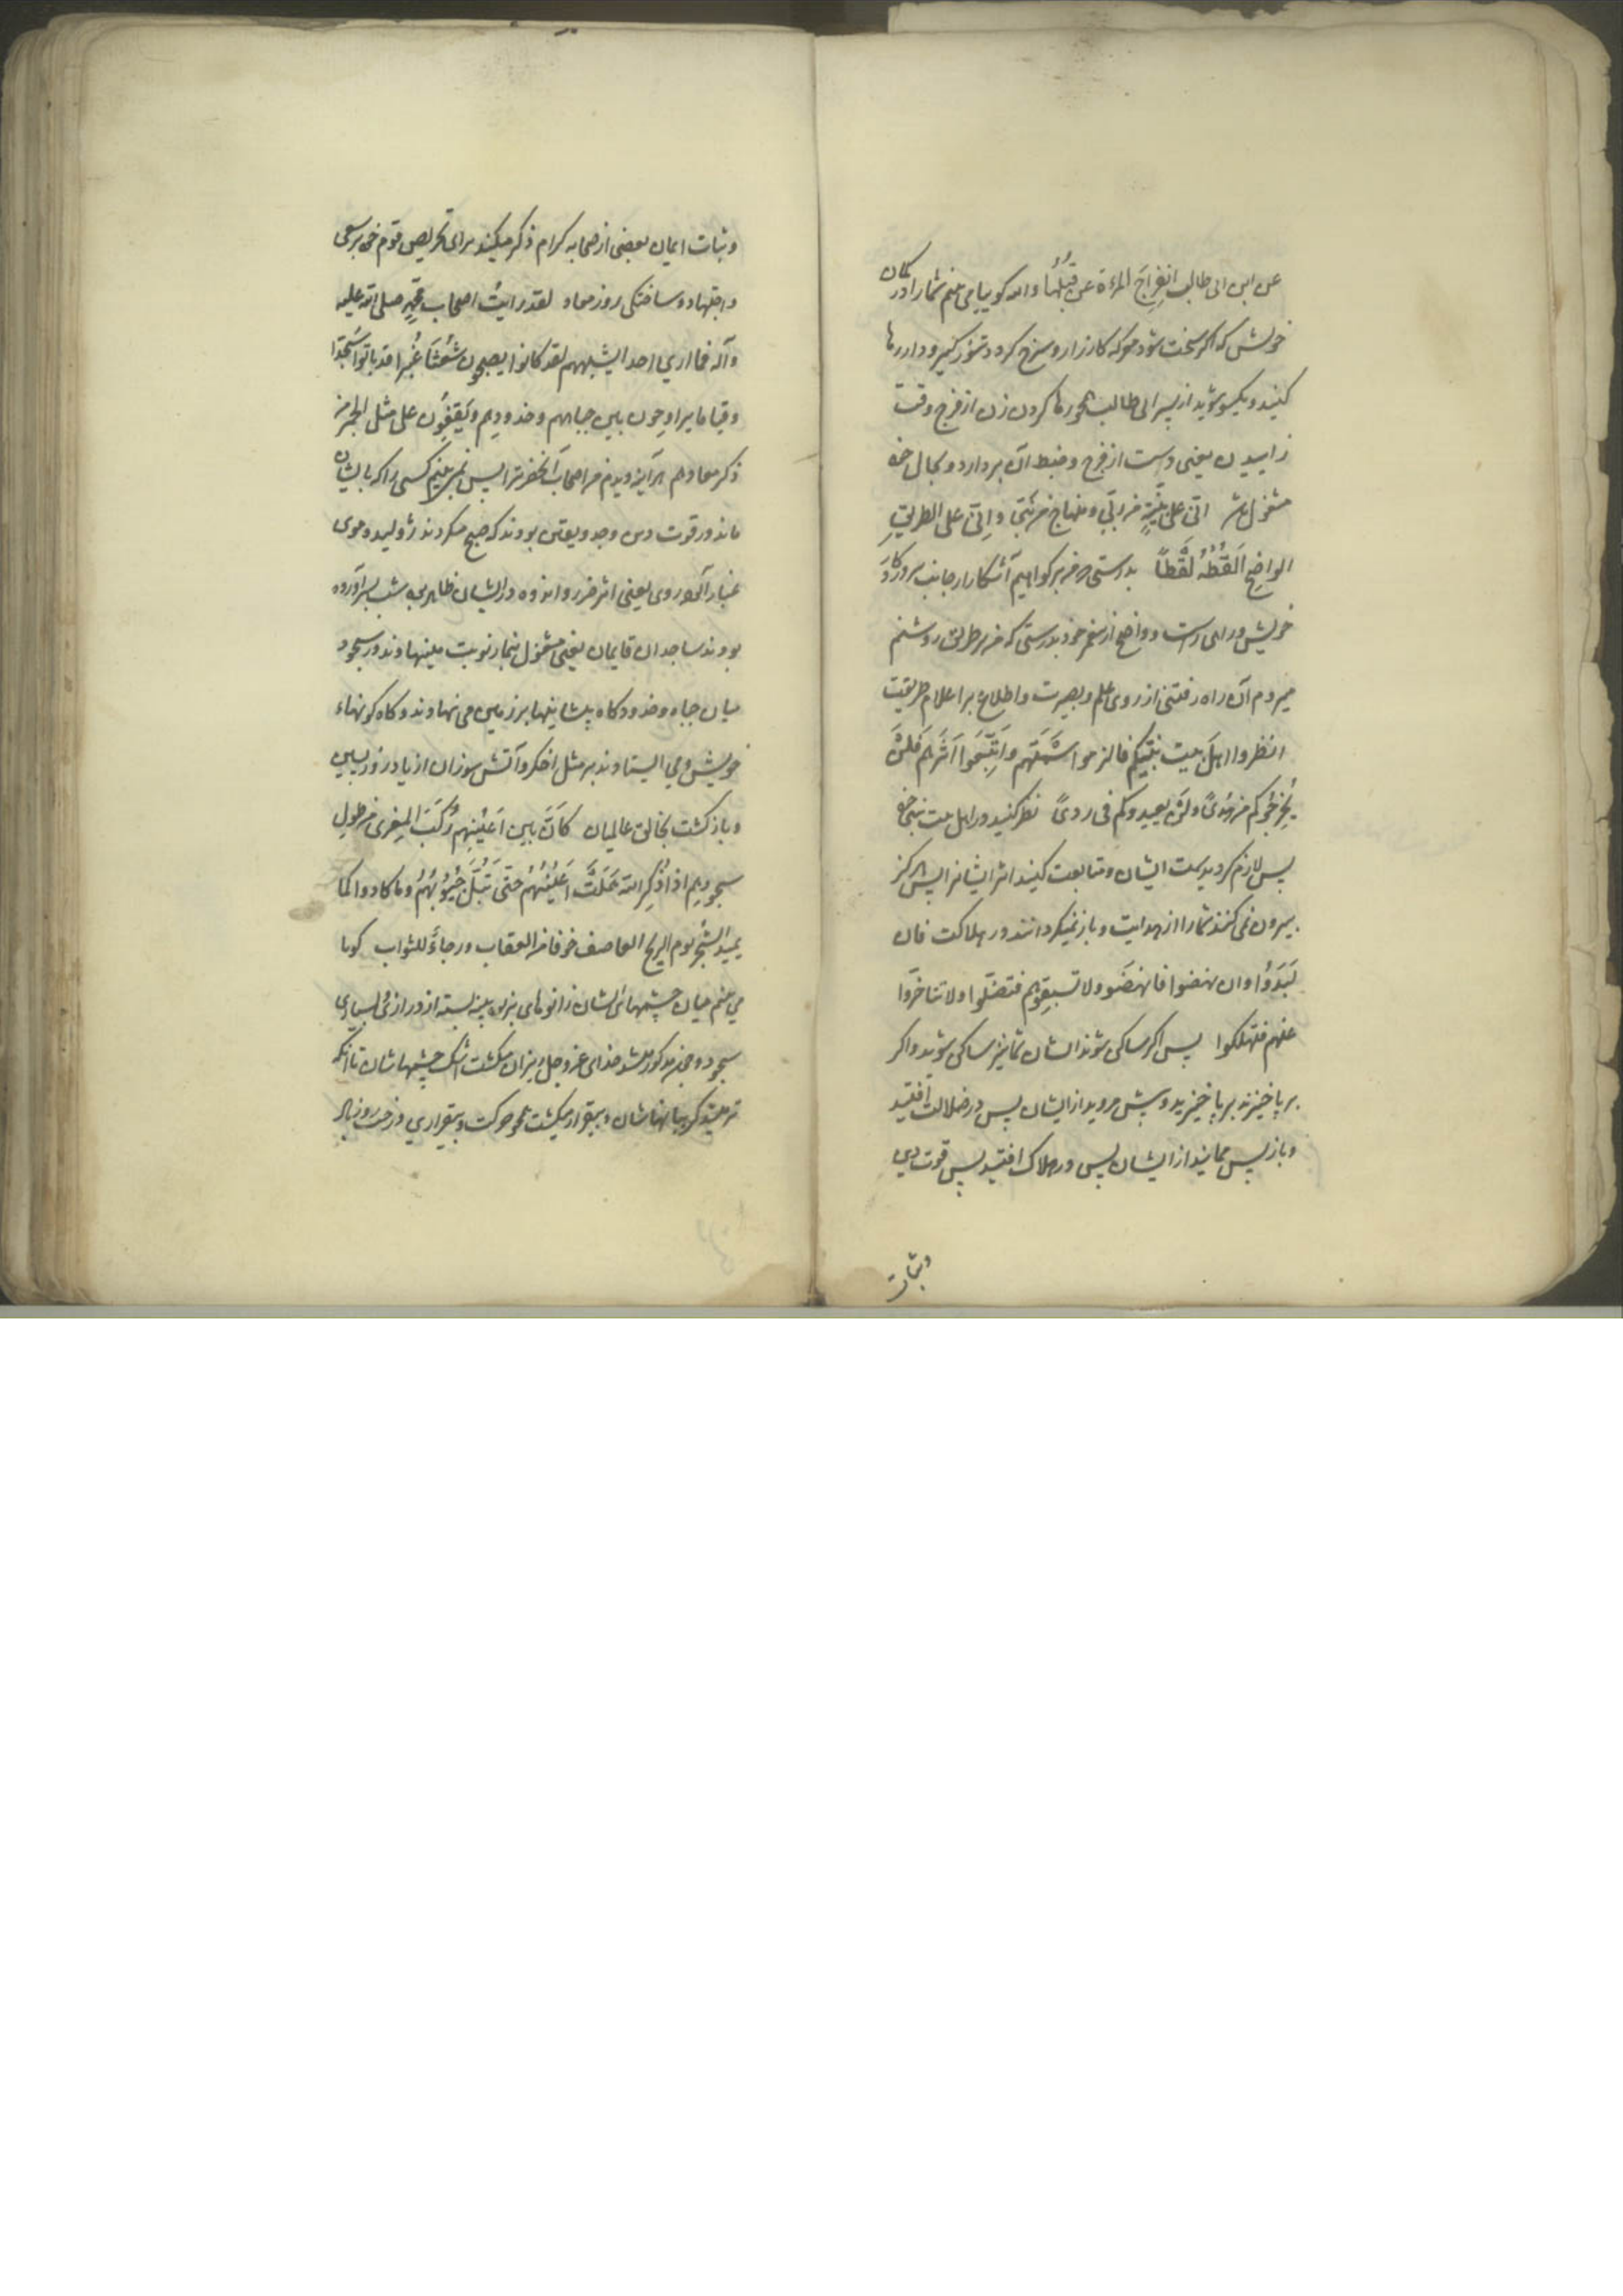 عن ابن ابی طالب انفِراجَ المرءة عن قُبُلُها والله کوییا می بینم شما را در کمان
خویش که اکر سخت شود معرکه کارزار و سرخ کردد تنور کیر و دار رها
کنید و یکسو شوید از پسر ابی طالب همچو رها کردن زن از فرج وقت
زاییدن یعنی دست از فرج و ضبط آن بردارد و بحال خود
مشغول باشد انّی علی بیّنةٍ من ربّی و منهاج من نبیّی و اِنّی علی الطریقِ
الواضحِ اَلقُطُهُ لَقطاً بدرستی که من بر کواهیم آشکارا از جانب پروردکار
خویش و راهی راست و واضح از پیغمبر خود بدرستی که من بر طریق روشنم
میروم آن راه رفتنی از روی علم و بصیرت و اطلاع بر اعلام طریقت
انظروا اهلَ بیت نبیّکم فالزموا سَمتَهم واتَّبِعُوا اَثَرَهم فَلَنْ
یُخرِجُوکم من هُدیً ولَن یعیدوکم فی ردیً نظر کنید در اهل بیت نبی خود
پس لازم کردید سمت ایشان و متابعت کنید اثر ایشانرا پس هرکز
بیرون نمی کنند شما را از هدایت و باز نمیکردانند در هلاکت فان
لَبَدَوُا وان نهضوا فانهضوا ولا تسبقوهم فتضلّوا ولا تتاخّروا
عنهم فتهلکوا پس اکر ساکن شوند ایشان شما نیز ساکن شوید و اکر
برپا خیزند برپا خیزید و پیش مروید از ایشان پس در ضلالت افتید
و باز پس ممانید از ایشان پس در هلاک افتید پس قوت دین
وثبات
وثبات ایمان بعضی از صحابه کرام ذکر میکند برای تحریص قوم خود بر سعی
و اجتهاد و ساختکی روز معاد لقد رایتُ اصحاب محمّدٍ صلی الله علیه
وآله فما اری احدا یشبههم لقد کانوا یصبحون شُعْثَاً غُبْرا قد باتوا سُجّدا
وقیاما یراوحون بین جباههم وخدودهم ویَقِفُون علی مثل الجمر من
ذکر معادهم هرآینه دیدم من اصحاب آنحضرترا پس نمی بینم کسی را که بایشان
ماند در قوت دین وجد ویقین بودند که صبح میکردند ژولیده موی
غبار آلوده روی یعنی اثر ضرر و اندوه در ایشان ظاهر می شب بسر آورده
بودند ساجدان قایمان یعنی مشغول بنماز نوبت مینهادند در سجود
میان جباه وخدود کاه پیشانیها بر زمین می نهادند و کاه کونهاء
خویش ومی ایستادند بر مثل اخکر و آتش سوزان از یاد روز پسین
و بازکشت بخالق عالمیان کَانَّ بین اَعیُنِهِم رُکَبَ المِعزی من طولِ
سجودهم اذا ذُکِرَ الله هَمَلَتْ اَعیُنُهُم حتّی تَبُلَّ جُیُوبَهُم وما کادوا کما
یمید الشجر یوم الریح العاصف خوفا من العقاب ورجاءً للثواب کویا
می بینم میان چشمهای ایشان زانوهای بز پینه بسته از درازی بسیاری
سجود و چون مذکور میشد خدای عز و جل ریزان میکشت اشک چشمهاشان تا آنکه
تر میشد کریبانهاشان و بیقرار میکشت همچو حرکت و بیقراری درخت روز باد